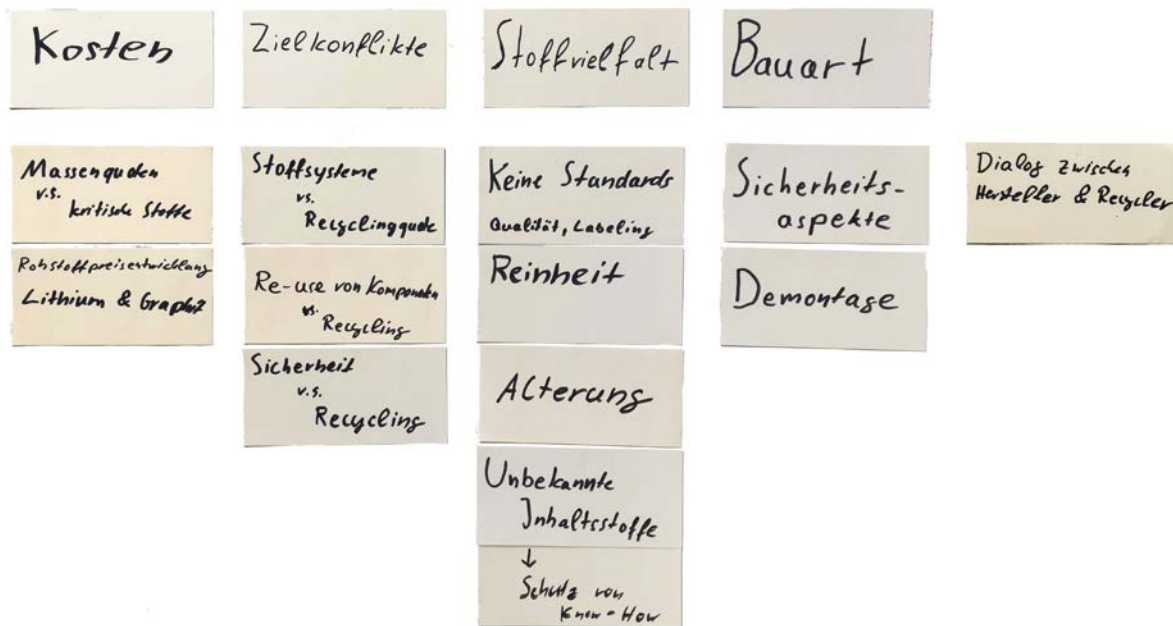 Kosten
Massenquoten
v.s.
kritische Stoffe
Rohstoffpreisentwicklung
Lithium & Graphit
Zielkonflikte
Stoffsysteme
vs.
Recyclingquote
Re-use von Komponenten
vs.
Recycling
Sicherheit
v.s.
Recycling
Stoffvielfalt
Keine Standards
Qualität, Labeling
Reinheit
Alterung
Unbekannte
Inhaltsstoffe
↓
Schutz von
Know-How
Bauart
Sicherheits-
aspekte
Demontage
Dialog zwischen
Hersteller & Recycler